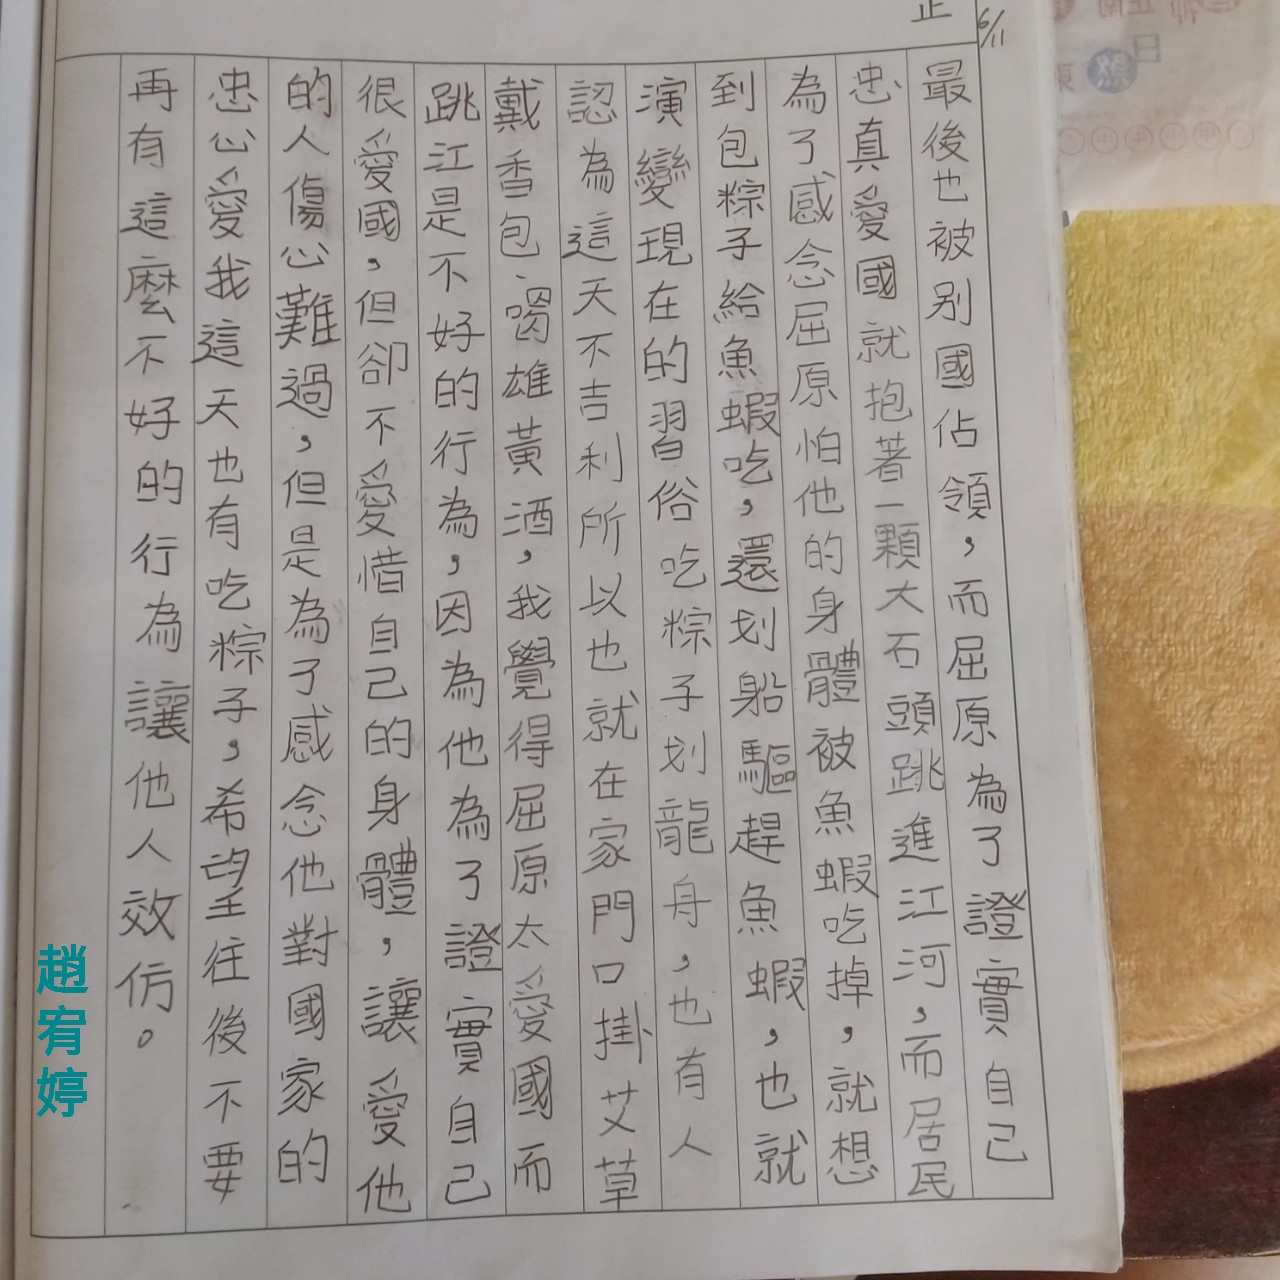 正
6/11
最後也被別國佔領，而屈原為了證實自己
忠真愛國就抱著一顆大石頭跳進江河，而居民
為了感念屈原怕他的身體被魚蝦吃掉，就想
到包粽子給魚蝦吃，還划船驅趕魚蝦，也就
演變現在的習俗吃粽子划龍舟，也有人
認為這天不吉利所以也就在家門口掛艾草
戴香包、喝雄黃酒，我覺得屈原太愛國而
跳江是不好的行為，因為他為了證實自己
很愛國，但卻不愛惜自己的身體，讓愛他
的人傷心難過，但是為了感念他對國家的
忠心愛我這天也有吃粽子，希望往後不要
再有這麼不好的行為讓他人效仿。
趙宥婷